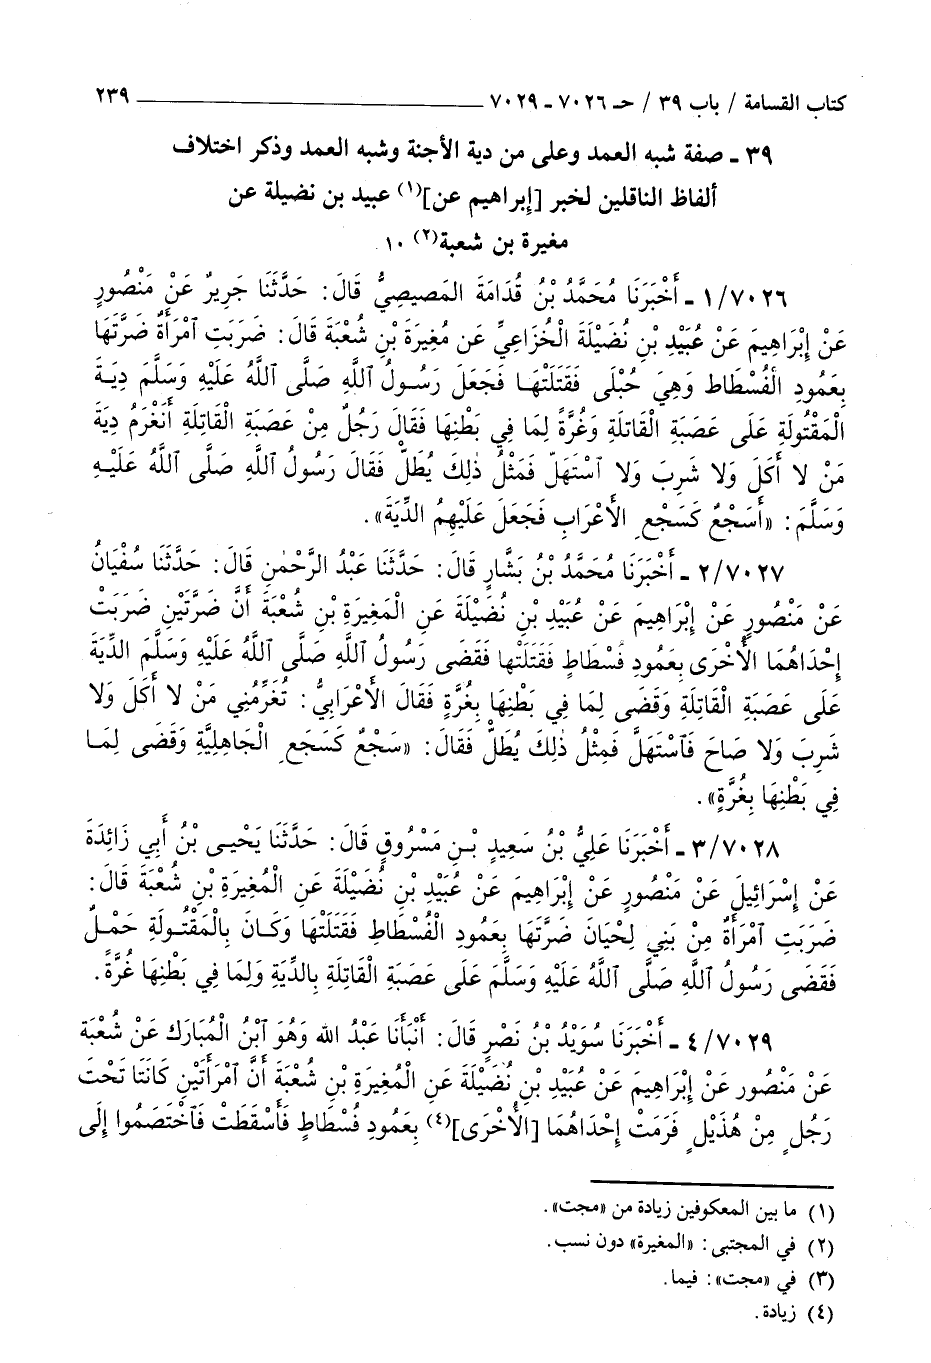 كتاب القسامة / باب ٣٩ / حـ ٧٠٢٦ - ٧٠٢٩ ٢٣٩
٣٩ - صفة شبه العمد وعلى من دية الأجنة وشبه العمد وذكر اختلاف
ألفاظ الناقلين لخبر [إبراهيم عن](١) عبيد بن نضيلة عن
مغيرة بن شعبة(٢) ١٠
١/٧٠٢٦ - أَخْبَرَنَا مُحَمَّدُ بْنُ قُدَامَةَ المَصيصِيُّ قَالَ: حَدَّثَنَا جَرِيرٌ عَنْ مَنْصُورٍ
عَنْ إِبْرَاهِيمَ عَنْ عُبَيْدِ بْنِ نُضَيْلَةَ الْخُزَاعِيِّ عَن مُغِيرَةَ بْنِ شُعْبَةَ قَالَ: ضَرَبَتِ ٱمْرَأَةٌ ضَرَّتَهَا
بِعَمُودِ الْفُسْطَاط وَهِيَ حُبْلَى فَقَتَلَتْهَا فَجَعَلَ رَسُولُ ٱللَّهِ صَلَّى ٱللَّهُ عَلَيْهِ وَسَلَّمَ دِيَةَ
المَقْتُولَةِ عَلَى عَصَبَةِ الْقَاتِلَةِ وَغُرَّةً لِمَا فِي بَطْنِهَا فَقَالَ رَجُلٌ مِنْ عَصَبَةِ الْقَاتِلَةِ أَنَغْرَمُ دِيَةَ
مَنْ لا أَكَلَ وَلا شَرِبَ وَلا ٱسْتَهَلّ فَمَثْلُ ذٰلِكَ يُطَلّ فَقَالَ رَسُولُ ٱللَّهِ صَلَّى ٱللَّهُ عَلَيْهِ
وَسَلَّمَ: «أَسَجْعٌ كَسَجْعِ الأَعْرَابِ فَجَعَلَ عَلَيْهِمُ الدِّيَةَ».
٢/٧٠٢٧ - أَخْبَرَنَا مُحَمَّدُ بْنُ بَشَّارٍ قَالَ: حَدَّثَنَا عَبْدُ الرَّحْمٰنِ قَالَ: حَدَّثَنَا سُفْيَانُ
عَنْ مَنْصُورٍ عَنْ إِبْرَاهِيمَ عَنْ عُبَيْدِ بْنِ نُضَيْلَةَ عَنِ الْمَغِيرَةِ بْنِ شُعْبَةَ أَنَّ ضَرَّتَيْنِ ضَرَبَتْ
إِحْدَاهُمَا الْأُخْرَى بِعَمُودِ فُسْطَاطٍ فَقَتَلَتْها فَقَضَى رَسُولُ ٱللَّهِ صَلَّى ٱللَّهُ عَلَيْهِ وَسَلَّمَ الدِّيَةَ
عَلَى عَصَبَةِ الْقَاتِلَةِ وَقَضَى لِمَا فِي بَطْنِهَا بِغُرَّةٍ فَقَالَ الأَعْرَابِيُّ: تُغَرِّمُنِي مَنْ لا أَكَلَ وَلا
شَرِبَ وَلا صَاحَ فَٱسْتَهَلَّ فَمِثْلُ ذٰلِكَ يُطَلُّ فَقَالَ: «سَجْعٌ كَسَجَعِ الْجَاهِلِيَّةِ وَقَضَى لِمَا
فِي بَطْنِهَا بِغُرَّةٍ».
٣/٧٠٢٨ - أَخْبَرَنَا عَلِيُّ بْنُ سَعِيدِ بْنِ مَسْرُوقٍ قَالَ: حَدَّثَنَا يَحْيى بْنُ أَبِي زَائِدَةَ
عَنْ إِسْرَائِيلَ عَنْ مَنْصُورٍ عَنْ إِبْرَاهِيمَ عَنْ عُبَيْدِ بْنِ نُضَيْلَةَ عَنِ الْمُغِيرَةِ بْنِ شُعْبَةَ قَالَ:
ضَرَبَتِ ٱمْرَأَةٌ مِنْ بَنِي لِحْيَانَ ضَرَّتَهَا بِعَمُودِ الْفُسْطَاطِ فَقَتَلَتْهَا وَكَانَ بِالْمَقْتُولَةِ حَمْلٌ
فَقَضَى رَسُولُ ٱللَّهِ صَلَّى ٱللَّهُ عَلَيْهِ وَسَلَّمَ عَلَى عَصَبَةِ الْقَاتِلَةِ بِالدِّيَةِ وَلِمَا فِي بَطْنِهَا غُرَّةٌ.
٤/٧٠٢٩ - أَخْبَرَنَا سُوَيْدُ بْنُ نَصْرٍ قَالَ: أَنْبَأَنَا عَبْدُ الله وَهُوَ ٱبْنُ الْمُبَارَك عَنْ شُعْبَةَ
عَنْ مَنْصُورٍ عَنْ إِبْرَاهِيمَ عَنْ عُبَيْدِ بْنِ نُضَيْلَةَ عَنِ الْمُغِيرَةِ بْنِ شُعْبَةَ أَنَّ ٱمْرَأَتَيْنِ كَانَتَا تَحْتَ
رَجُلٍ مِنْ هُذَيْلٍ فَرَمَتْ إِحْدَاهُمَا [الأُخْرَى](٤) بِعَمُودِ فُسْطَاطٍ فَأَسْقَطَتْ فَٱخْتَصَمُوا إِلَى
(١) ما بين المعكوفين زيادة من «مجت».
(٢) في المجتبى: «المغيرة» دون نسب.
(٣) في «مجت»: فيما.
(٤) زيادة.